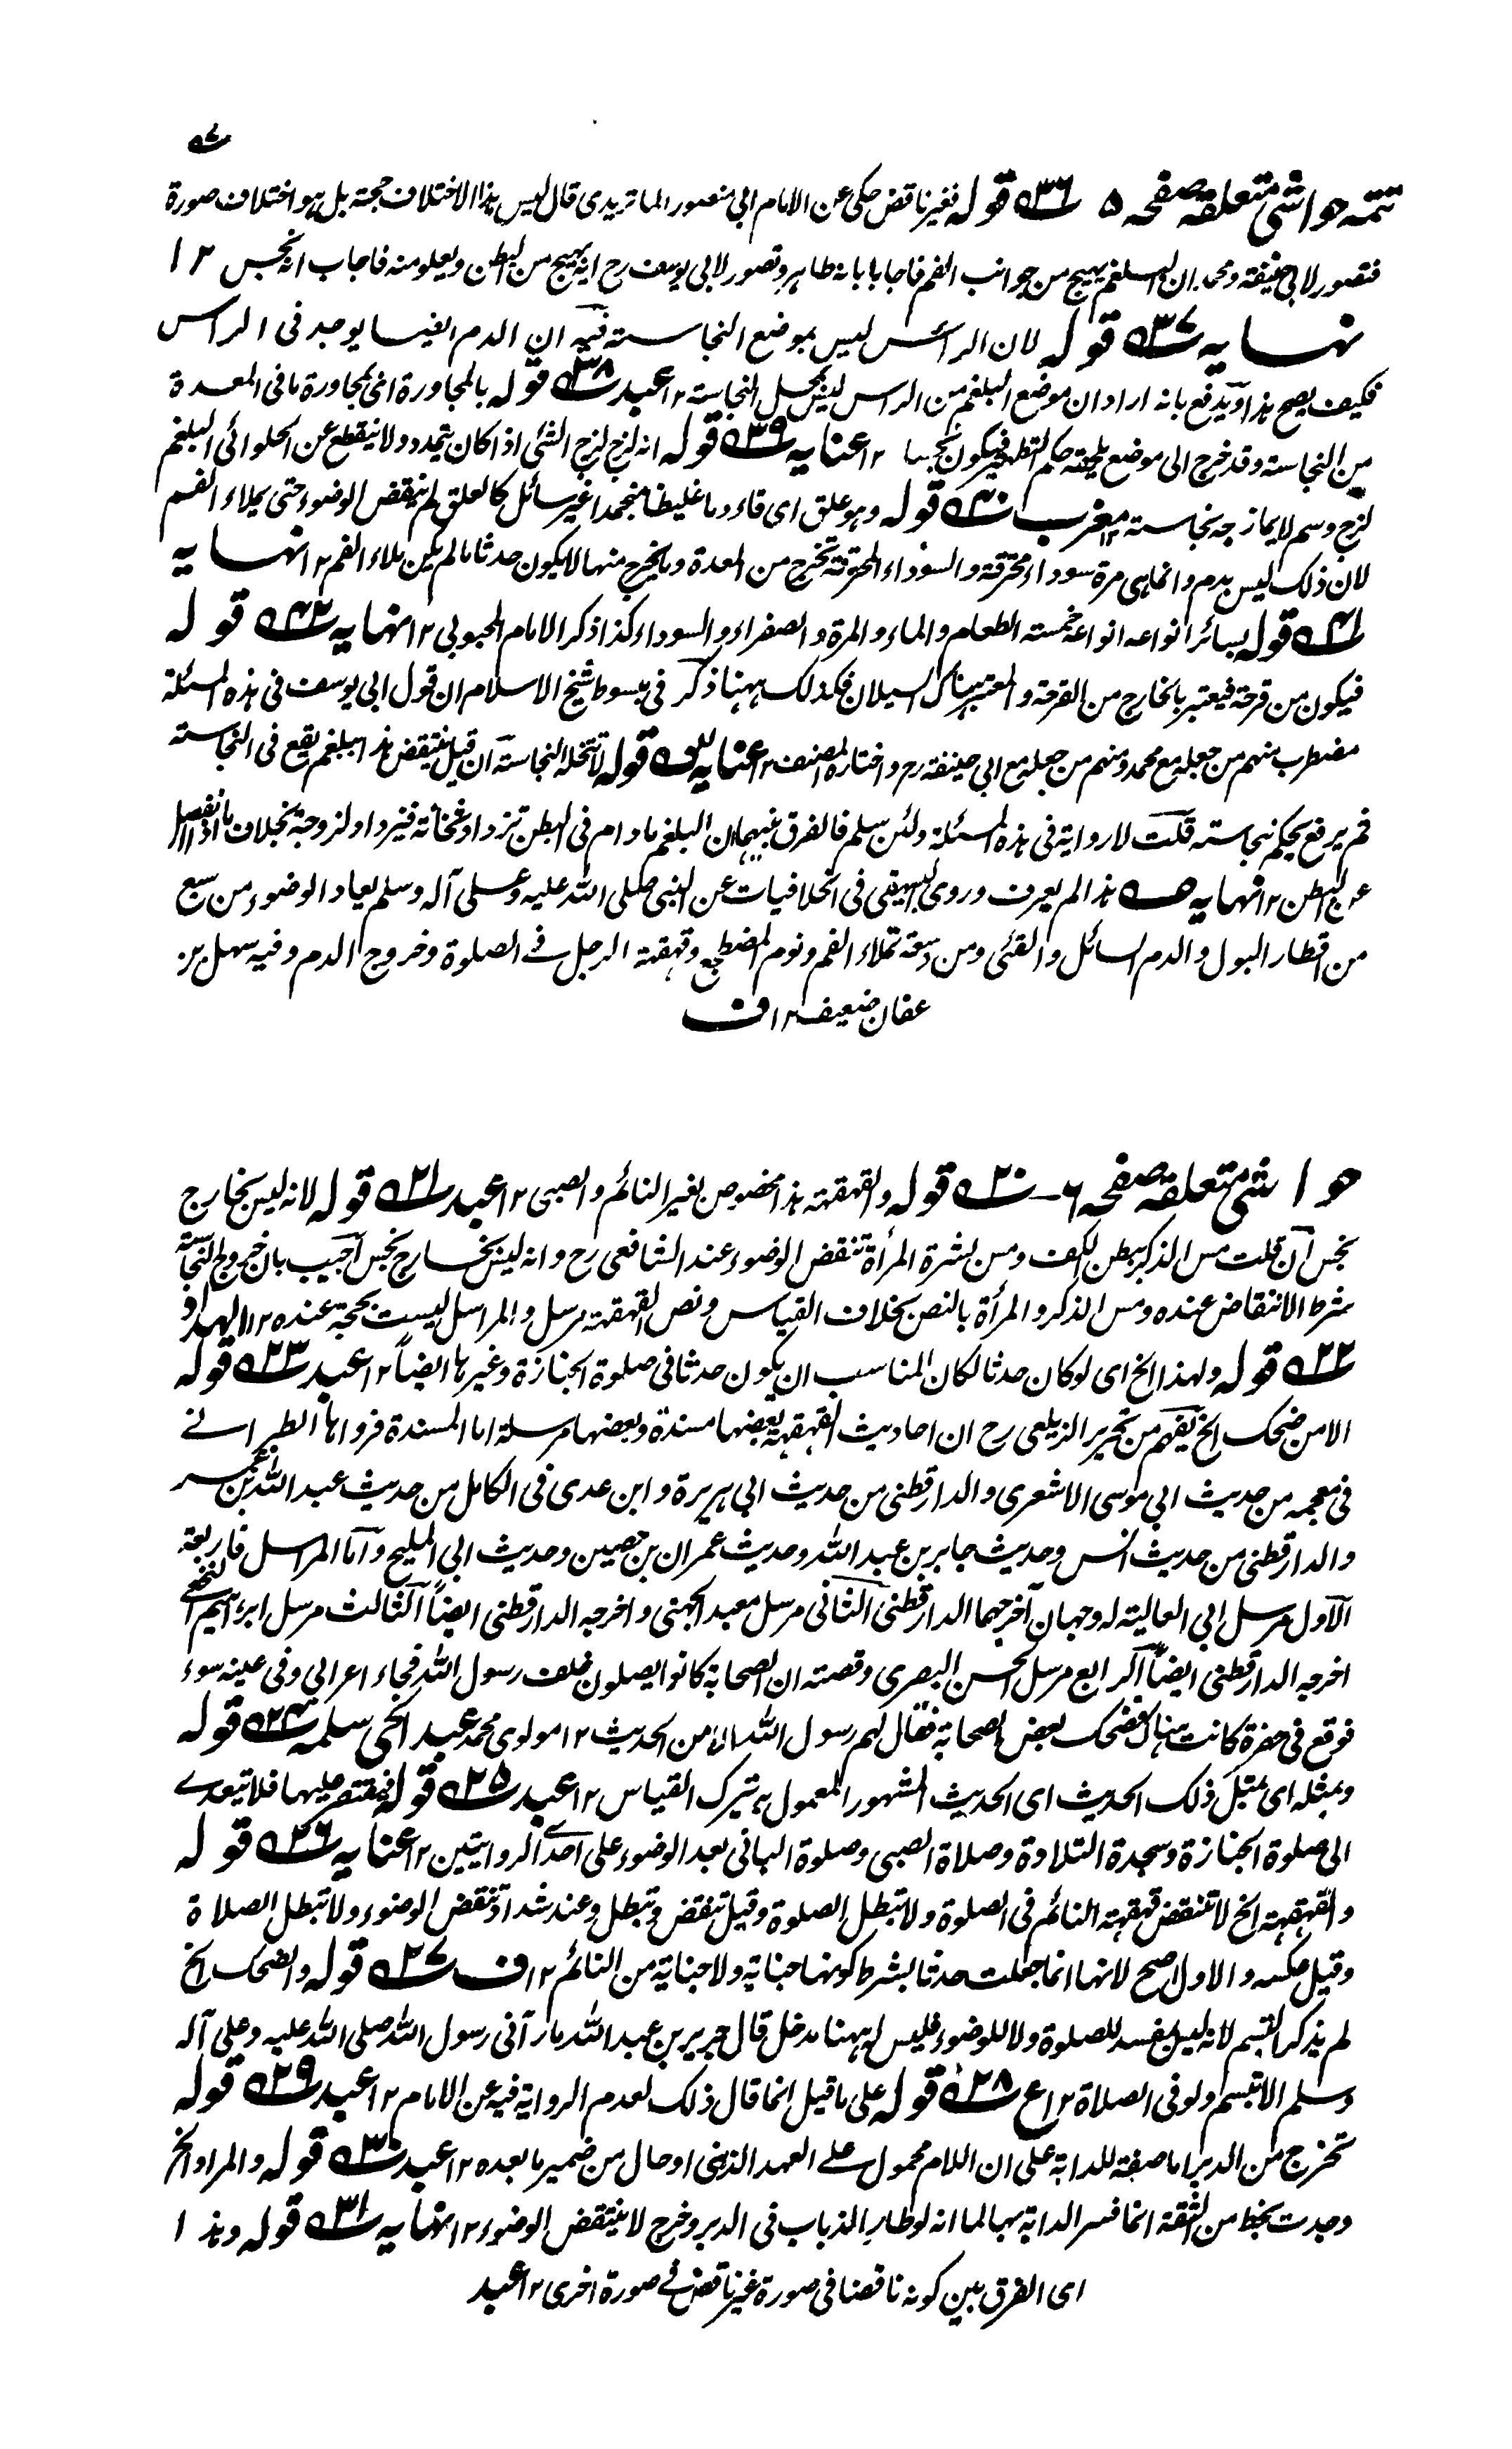 ۷
تتمہ حواشی متعلقہ صفحہ ۵ ۳۶ قوله فغیر ناقض حکی عن الامام ابی منصور الماتریدی قال لیس ہذا الاختلاف حجۃ بل ہو اختلاف صورۃ
فتصور لابی حنیفۃ ومحمد ان البلغم یہیج من جوانب الفم فاجابا بانہ طاہر وتصور لابی یوسف رح انہ یہیج من البطن ویعلو منہ فاجاب انہ نجس ۱۲
نہایہ ۳۷ قوله لان الراس لیس بموضع النجاسۃ فیہ ان الدم ایضا یوجد فی الراس
فکیف یصح ہذا ویدفع بانہ اراد ان موضع البلغم من الراس لیس محل النجاسۃ ۱۲ عبد ۳۸ قوله بالمجاورۃ ای بمجاورۃ ما فی المعدۃ
من النجاسۃ وقد خرج الی موضع یلحقہ حکم التطہیر فیکون نجسا ۱۲ عنایہ ۳۹ قوله انہ لزج لزج الشئی اذا کان یتمدد ولا ینقطع عن الحلوائی البلغم
لزج دسم لا یمازجہ نجاسۃ ۱۲ مغرب ۴۰ قوله وہو علق ای قاء دما غلیظا منجمدا غیر سائل کالعلق لم ینقض الوضوء حتی یملاء الفم
لان ذلک لیس بدم وانما ہی مرۃ سوداء محترقۃ والسوداء المحترقۃ تخرج من المعدۃ وما یخرج منہا لا یکون حدثا ما لم یکن ملاء الفم ۱۲ نہایہ
۴۱ قوله بسائر انواعہ انواعہ خمسۃ الطعام والماء والمرۃ والصفراء والسوداء کذا ذکر الامام المحبوبی ۱۲ نہایہ ۴۲ قوله
فیکون من قرحۃ فیعتبر بالخارج من القرحۃ والمعتبر ہناک السیلان فکذلک ہہنا ذکر فی مبسوط شیخ الاسلام ان قول ابی یوسف فی ہذہ المسئلۃ
مضطرب منہم من جعلہ مع محمد ومنہم من جعلہ مع ابی حنیفۃ رح واختارہ المصنف ۱۲ عنایہ قوله لا تتخللہ النجاسۃ ان قیل ینتقض ہذا ببلغم یقع فی النجاسۃ
ثم یرفع یحکم بنجاستہ قلت لا روایۃ فی ہذہ المسئلۃ ولئن سلم فالفرق بینہما ان البلغم مادام فی البطن تزداد ثخانۃ فیزداد لزوجۃ بخلاف ما اذا انفصل
عن البطن ۱۲ نہایہ ہذا لم یعرف وروی البیہقی فی الخلافیات عن النبی صلی اللہ علیہ وعلی آلہ وسلم یعاد الوضوء من سبع
من اقطار البول والدم السائل والقئی ومن دسعۃ تملاء الفم ونوم المضطجع وقہقہۃ الرجل فی الصلوۃ وخروج الدم وفیہ سہل بن
عفان ضعیف ۱۲ ف
حواشی متعلقہ صفحہ ۶ ۲۰ قوله والقہقہۃ ہذا مخصوص بغیر النائم والصبی ۱۲ عبد ۲۱ قوله لانہ لیس بخارج
نجس ان قلت مس الذکر ببطن الکف ومس بشرۃ المرأۃ تنقض الوضوء عند الشافعی رح وانہ لیس بخارج نجس اجیب بان خروج النجاسۃ
شرط الانتقاض عندہ ومس الذکر والمرأۃ بالنص بخلاف القیاس ونص القہقہۃ مرسل والمراسل لیست بحجۃ عندہ ۱۲ الہداد
۲۲ قوله ولہذا الخ ای لو کان حدثا لکان المناسب ان یکون حدثا فی صلوۃ الجنازۃ وغیرہا ایضاً ۱۲ عبد ۲۳ قوله
الا من ضحک الخ یفہم من تحریر الزیلعی رح ان احادیث القہقہۃ بعضہا مسندۃ وبعضہا مرسلۃ اما المسندۃ فرواہا الطبرانی
فی معجمہ من حدیث ابی موسی الاشعری والدارقطنی من حدیث ابی ہریرۃ وابن عدی فی الکامل من حدیث عبد اللہ بن عمر
والدارقطنی من حدیث انس وحدیث جابر بن عبد اللہ وحدیث عمران بن حصین وحدیث ابی الملیح واما المراسل فاربعۃ
الاول مرسل ابی العالیۃ لہ وجہان اخرجہما الدارقطنی الثانی مرسل معبد الجہنی واخرجہ الدارقطنی ایضاً الثالث مرسل ابراہیم النخعی
اخرجہ الدارقطنی ایضاً الرابع مرسل الحسن البصری وقصتہ ان الصحابۃ کانوا یصلون خلف رسول اللہ فجاء اعرابی وفی عینہ سوء
فوقع فی حفرۃ کانت ہناک فضحک بعض الصحابۃ فقال لہم رسول اللہ الا من الحدیث ۱۲ مولوی محمد عبد الحی سلمہ ۲۴ قوله
وبمثلہ ای بمثل ذلک الحدیث ای الحدیث المشہور المعمول بہ یترک القیاس ۱۲ عبد ۲۵ قوله فیقتصر علیہا فلا یتعدے
الی صلوۃ الجنازۃ وسجدۃ التلاوۃ وصلاۃ الصبی وصلوۃ البانی بعد الوضوء علی احدے الروایتین ۱۲ عنایہ ۲۶ قوله
والقہقہۃ الخ لا تنقض قہقہۃ النائم فی الصلوۃ ولا تبطل الصلوۃ وقیل تنقض وتبطل وعند شداد تنقض الوضوء ولا تبطل الصلاۃ
وقیل عکسہ والاول اصح لانہا انما جعلت حدثا بشرط کونہا جنایۃ ولا جنایۃ من النائم ۱۲ ف ۲۷ قوله والضحک الخ
لم یذکر التبسم لانہ لیس بمفسد للصلوۃ ولا للوضوء فلیس لہ ہہنا مدخل قال جریر بن عبد اللہ ما رآنی رسول اللہ صلی اللہ علیہ وعلی آلہ
وسلم الا تبسم ولو فی الصلاۃ ۱۲ ع ۲۸ قوله علی ما قیل انما قال ذلک لعدم الروایۃ فیہ عن الامام ۱۲ عبد ۲۹ قوله
تخرج من الدبر اما صفۃ للدابۃ علی ان اللام محمول علے العہد الذہنی او حال من ضمیر ما بعدہ ۱۲ عبد ۳۰ قوله والمراد الخ
وجدت بخط من الثقۃ انما فسر الدابۃ بہا لما انہ لو طار الذباب فی الدبر وخرج لا ینتقض الوضوء ۱۲ نہایہ ۳۱ قوله وہذا
ای الفرق بین کونہ ناقضا فی صورۃ غیر ناقض فی صورۃ اخری ۱۲ عبد